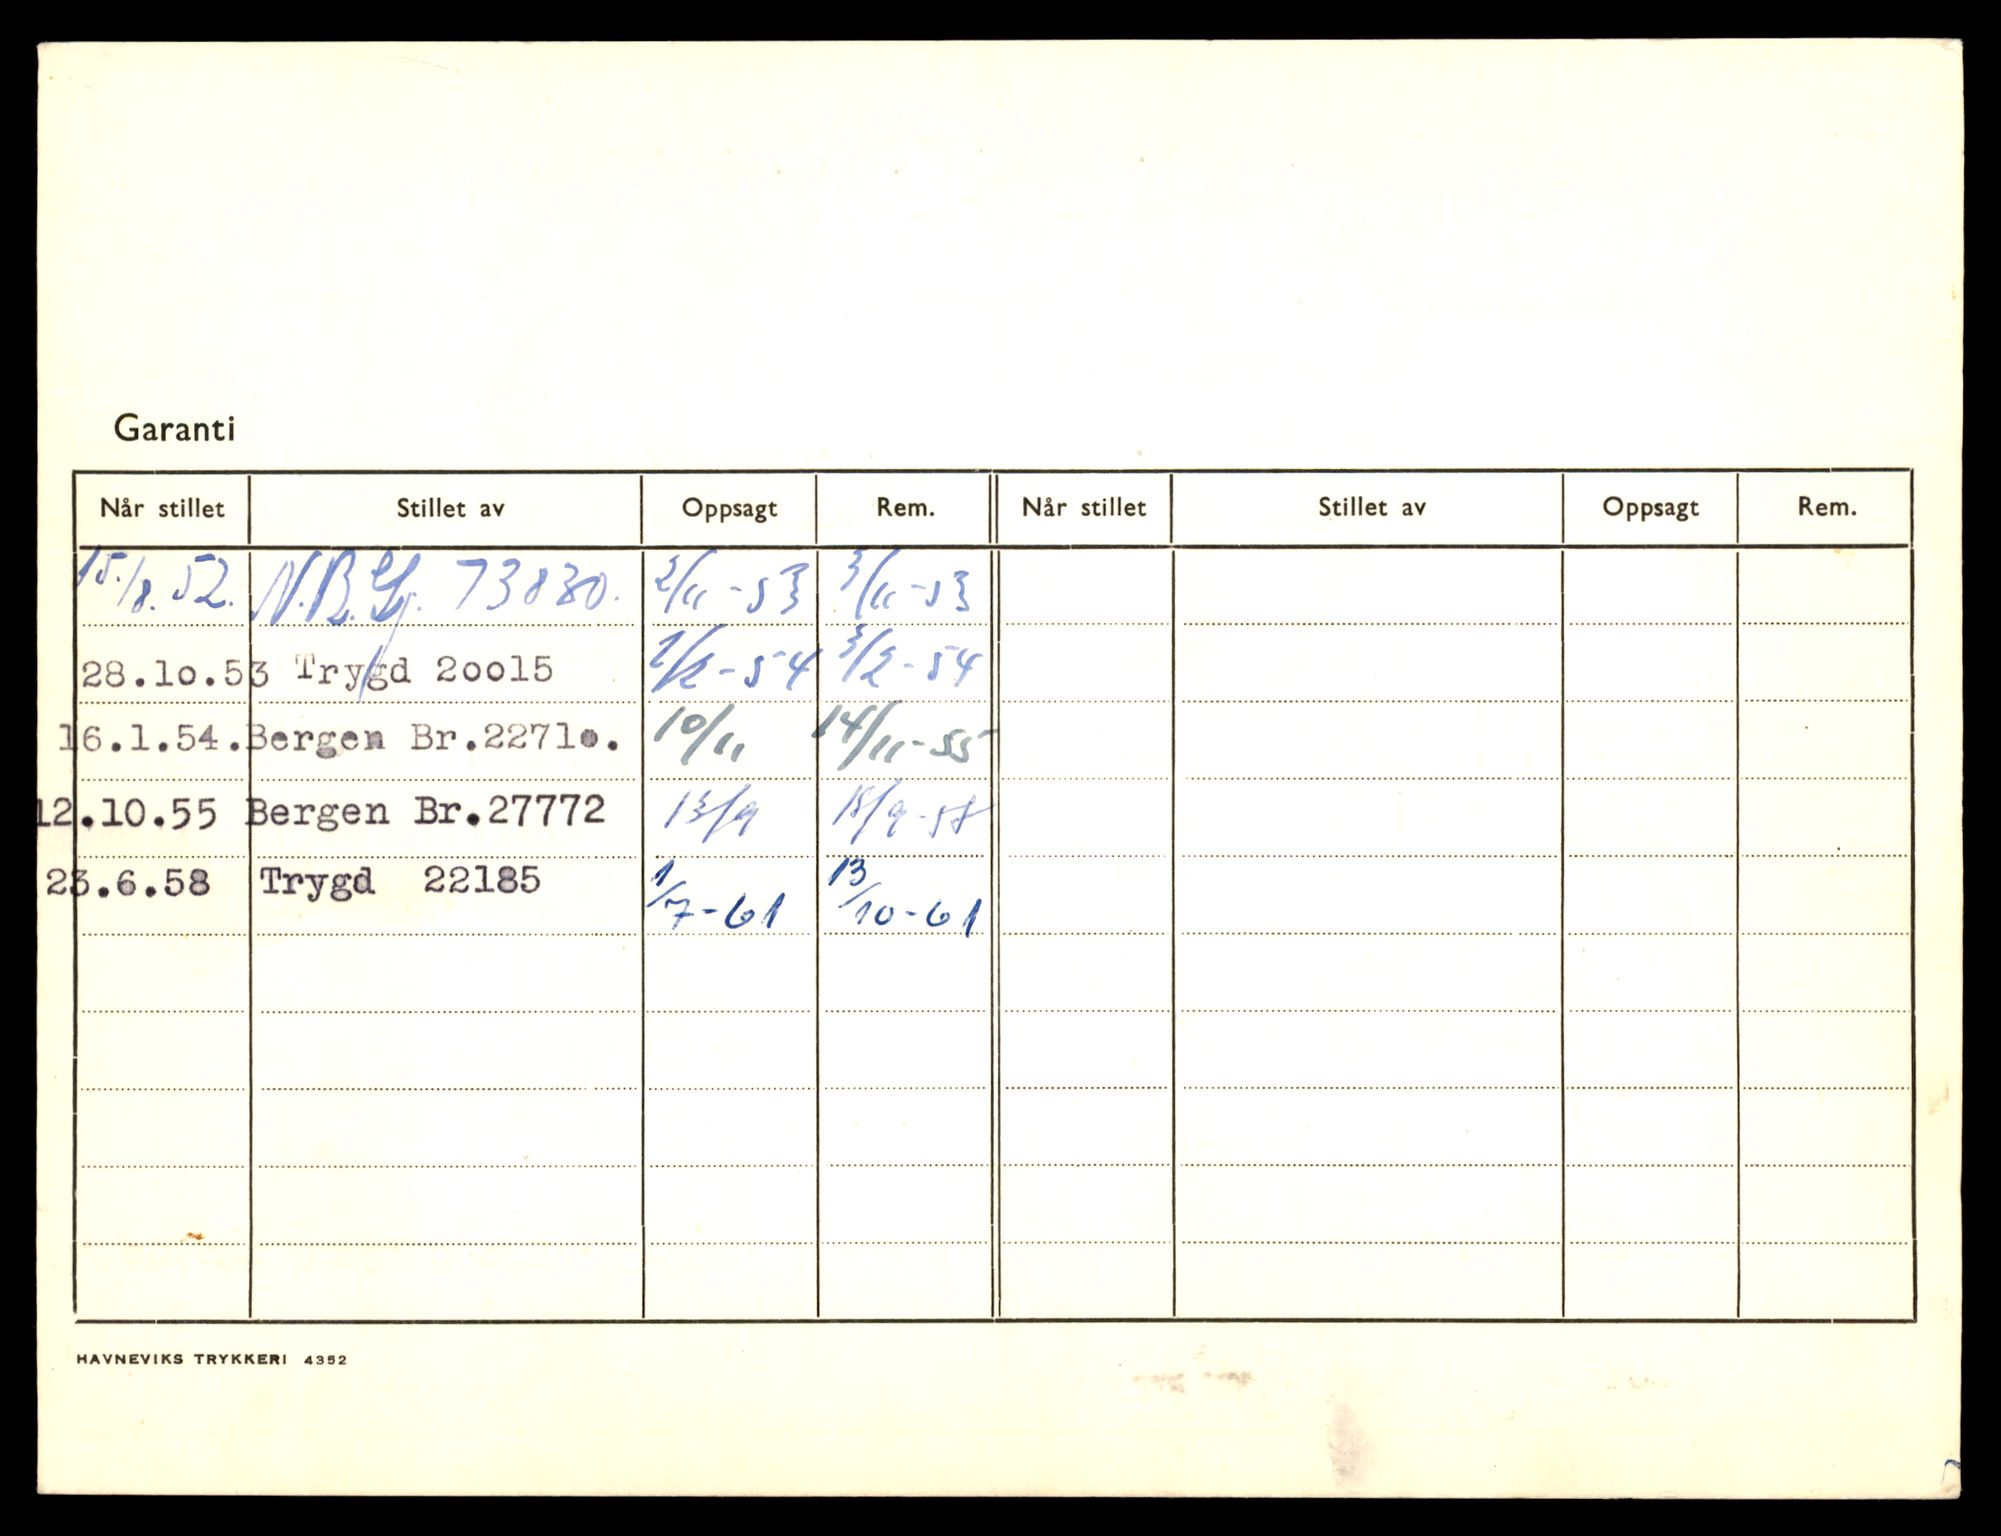 Garanti
Når stillet Stillet av Oppsagt Rem. Når stillet Stillet av Oppsagt Rem.
15./8.52. 73830. 2/11-53 3/11-53
28.10.53 Trygd 20015 2/2-54 3/2-54
16.1.54. Bergen Br.22710. 10/11 14/11-55
12.10.55 Bergen Br.27772 13/9 18/9-58
23.6.58 Trygd 22185 1/7-61 13/10-61
HAVNEVIKS TRYKKERI 4352